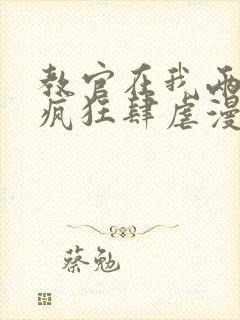 教官在我两
疯狂肆虐漫
蔡勉